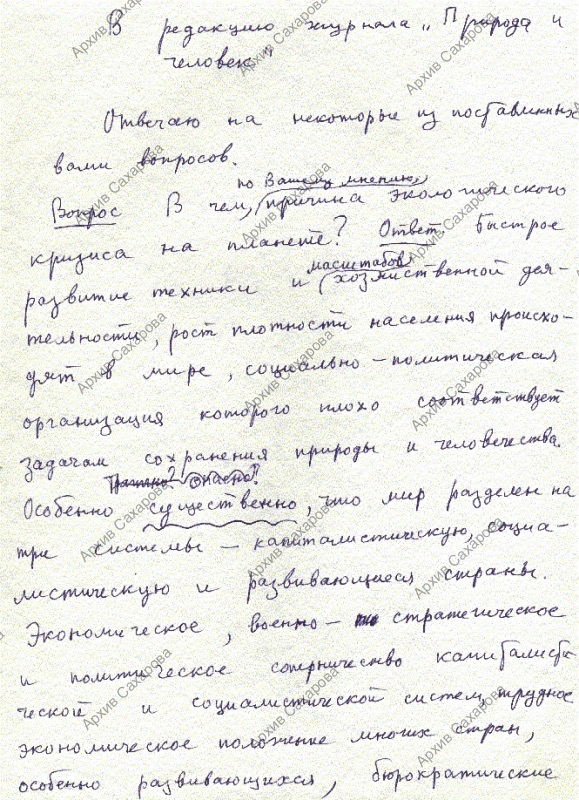 В редакцию журнала „Природа и
человек"
Отвечаю на некоторые из поставленных
вами вопросов.
по Вашему мнению,
Вопрос В чем, причина экологического
кризиса на планете? Ответ. Быстрое
масштабов
развитие техники и хозяйственной дея-
тельности, рост плотности населения происхо-
дят в мире, социально-политическая
организация которого плохо соответствует
задачам сохранения природы и человечества.
опасно?
Особенно существенно, что мир разделен на
три системы – капиталистическую, социа-
листическую и развивающиеся страны.
Экономическое, военно- стратегическое
и политическое соперничество капиталисти-
ческой и социалистической систем, трудное
экономическое положение многих стран,
особенно развивающихся, бюрократические
Архив Сахарова